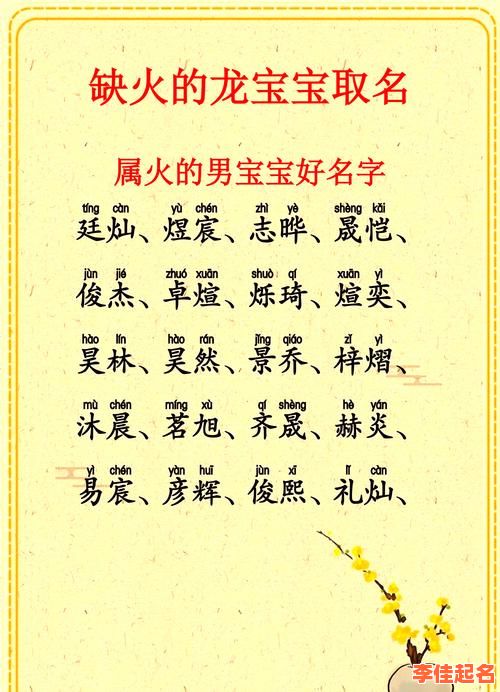 缺火的龙宝宝取名
属火的男宝宝好名字
tíng càn yù chén zhì yè shèng kǎi
廷灿、煜宸、志晔、晟恺、
jùn jié zhuó xuān shuò qí xuān yì
俊杰、卓煊、烁琦、煊奕、
hào lín hào rán jǐng qiáo zǐ yì
昊林、昊然、景乔、梓熠、
mù chén míng xù qí shèng hè yán
沐晨、茗旭、齐晟、赫炎、
yì chén yàn huī jùn xī lǐ càn
易宸、彦辉、俊熙、礼灿、
李佳起名